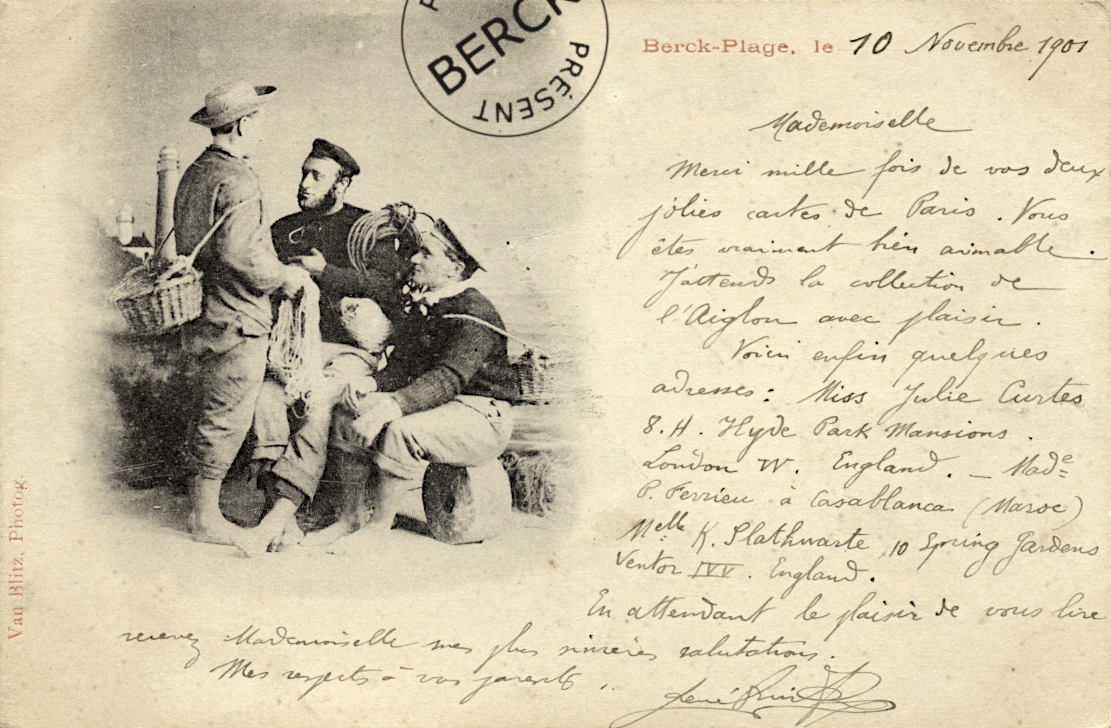 BERCK
PRÉSENT
Berck-Plage, le 10 Novembre 1901
Mademoiselle
Merci mille fois de vos deux
jolies cartes de Paris. Vous
êtes vraiment bien aimable.
J'attends la collection de
l'Aiglon avec plaisir.
Voici enfin quelques
adresses: Miss Julie Curtes
8.H. Hyde Park Mansions.
London W. England. — Made
P. Ferrieu à Casablanca (Maroc)
Melle K. 10 Spring Gardens
Ventor England.
En attendant le plaisir de vous lire
recevez Mademoiselle mes plus sincères salutations.
Mes respects à vos parents.
René
Van Blitz, Photog.